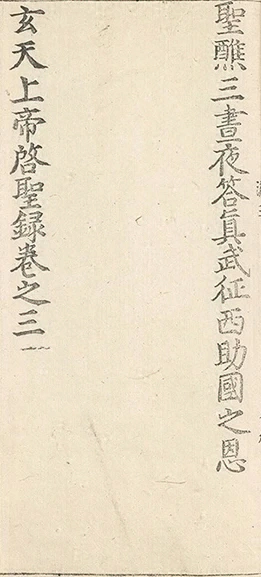 聖醮三晝夜答眞武征西助國之恩
玄天上帝啓聖録卷之三